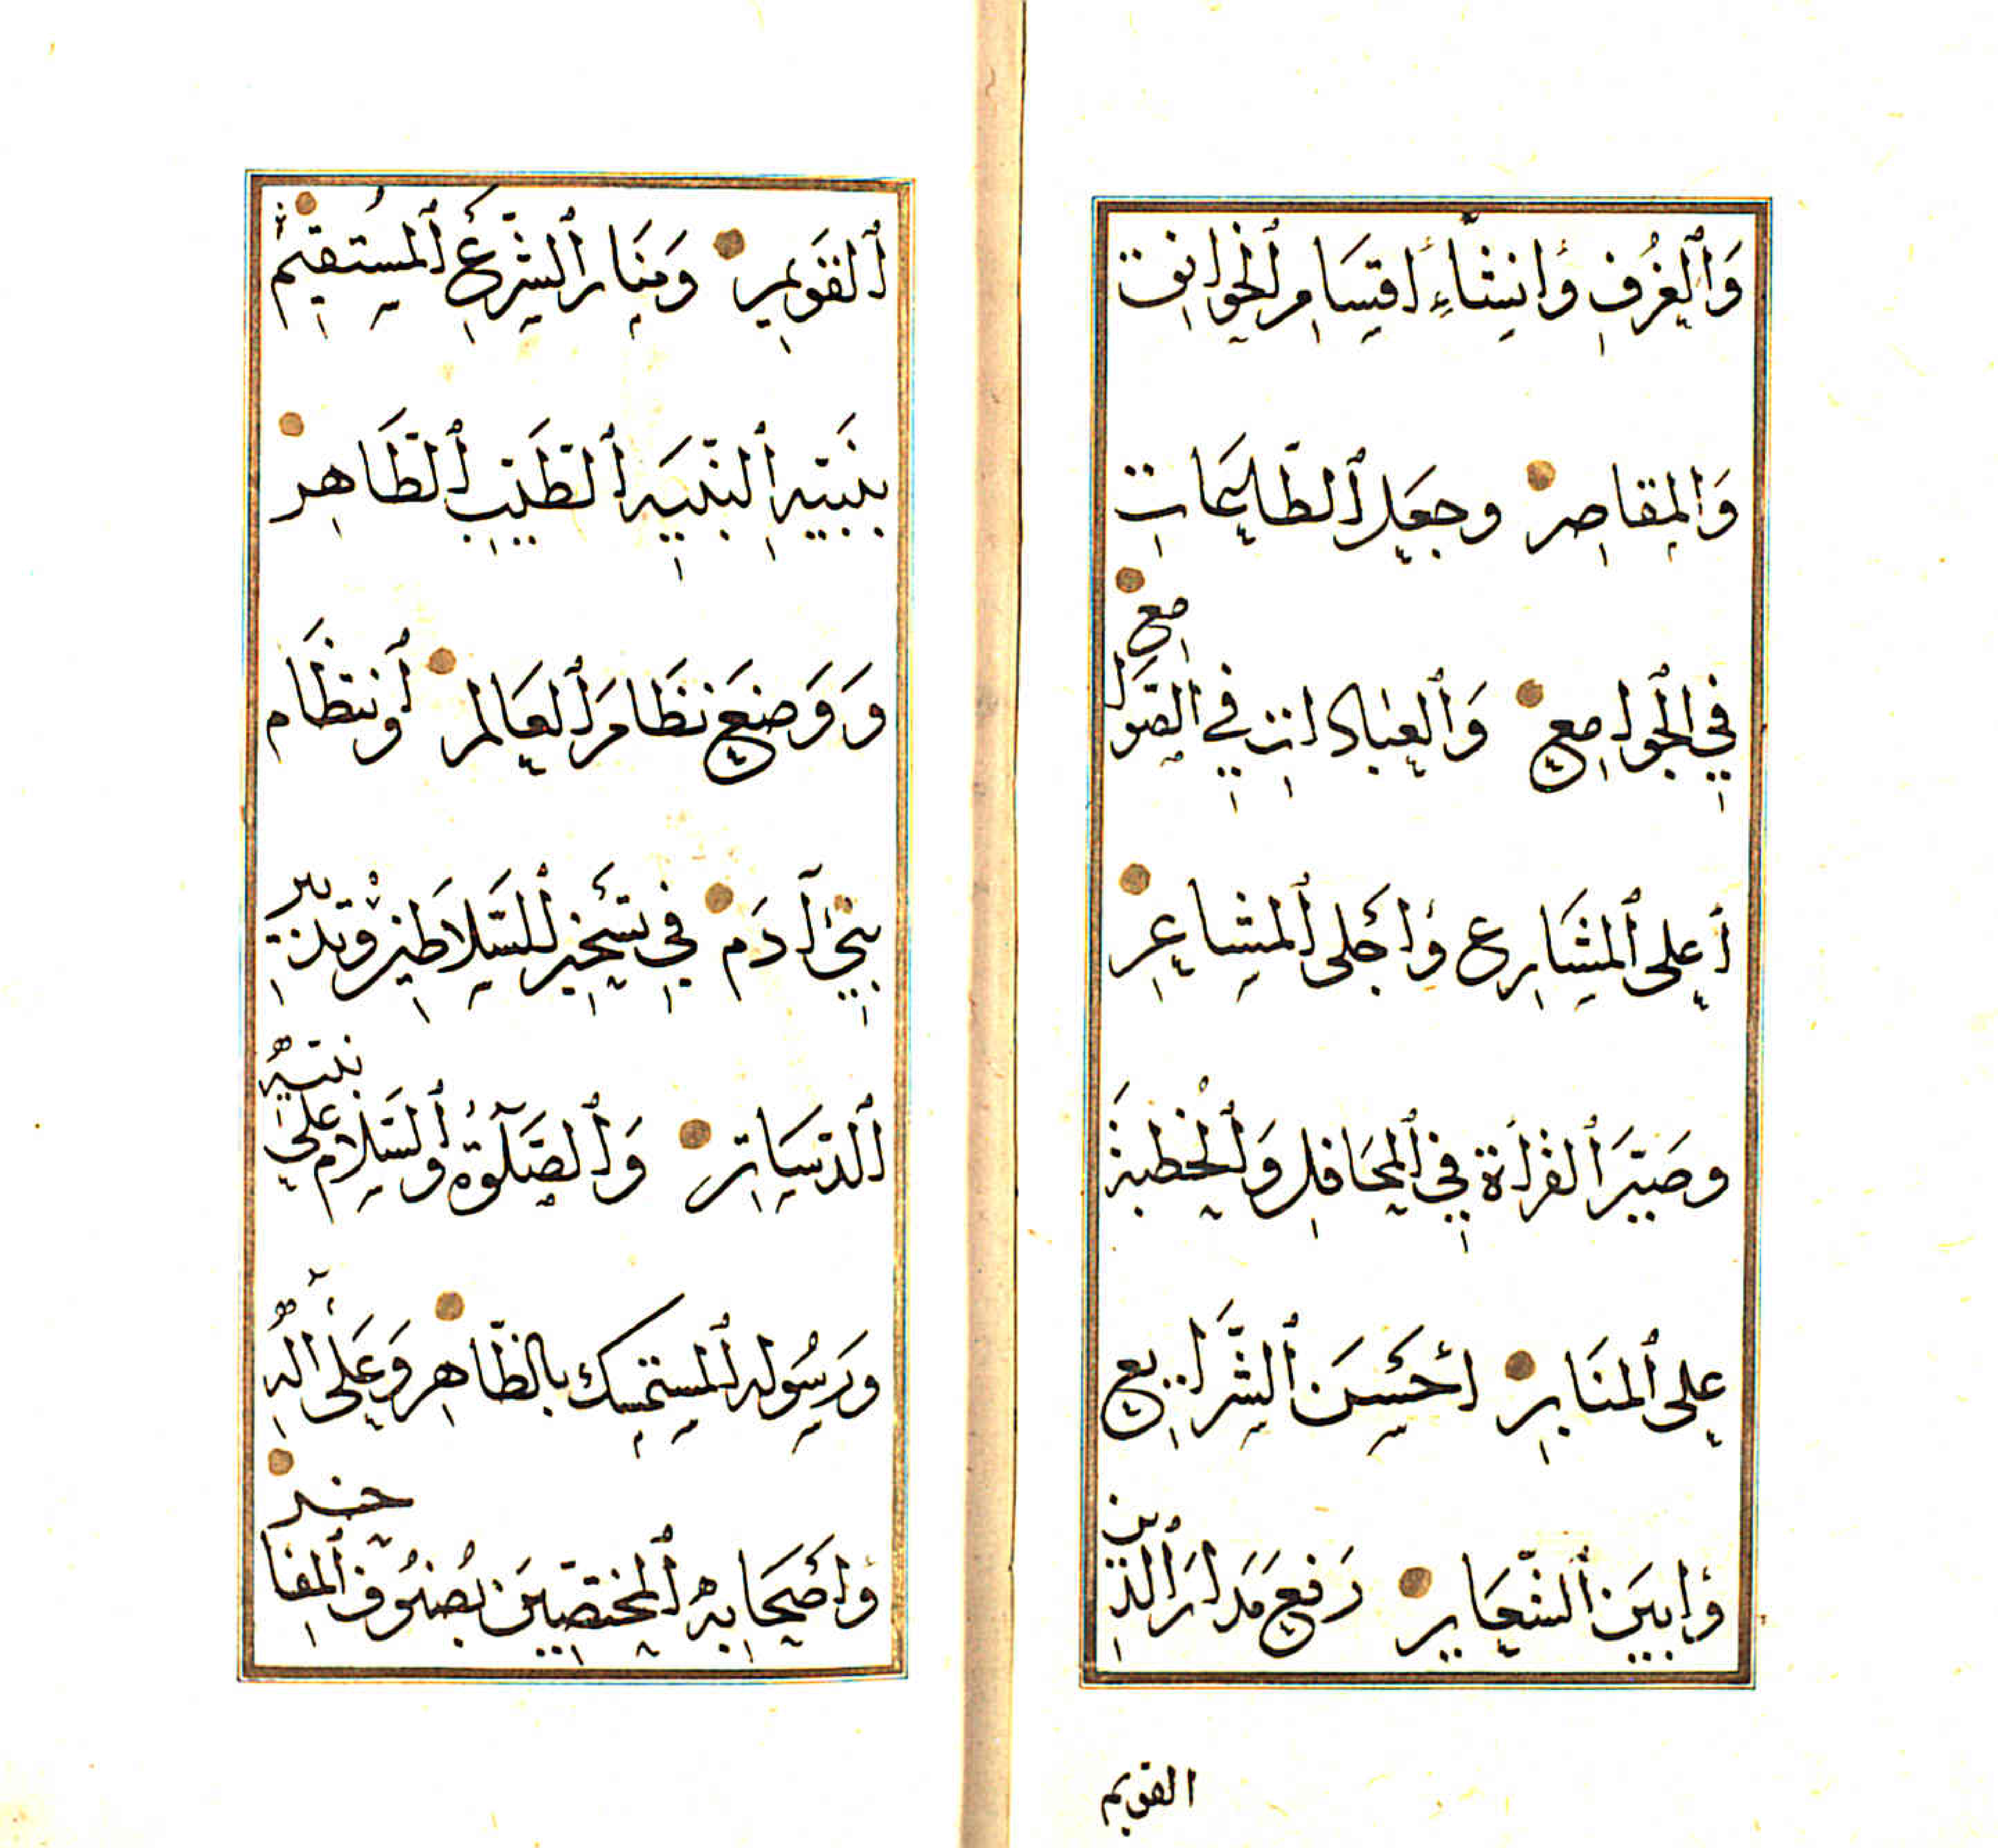 وَٱلْغُرَفِ وَٱنْشَاءِ اَقْسَامِ ٱلْخَوَانِقِ
وَٱلْمَقَاصِرِ وجَعَلَ ٱلطَّاعَاتِ
فِي ٱلْجَوَامِعِ وَٱلْعِبَادَاتِ فِي ٱلصَّوَامِعِ
اَعْلَى ٱلْمَشَارِعِ وَاَجْلَى ٱلْمَشَاعِرِ
وصَيَّرَ ٱلْقِرَاَةَ فِي ٱلْمَحَافِلِ وَٱلْخُطْبَةَ
عَلَى ٱلْمَنَابِرِ اَحْسَنَ ٱلشَّرَايِعِ
وَاَبْيَنَ ٱلشَّعَايِرِ رَفَعَ مَدَارَ ٱلدِّينِ
القويم
ٱلْقَوِيمِ وَمَنَارَ ٱلشَّرْعِ ٱلْمُسْتَقِيمِ
بِنَبِيِّهِ ٱلنَّبِيهِ ٱلطَّيِّبِ ٱلطَّاهِرِ
وَوَضَعَ نِظَامَ ٱلْعَالَمِ وَٱنْتِظَامَ
بَنِي آدَمَ فِي تَسْخِيرِ ٱلسَّلَاطِينِ وتَدْبِيرِ
ٱلدَّسَاتِرِ وَٱلصَّلٰوةُ وٱلسَّلَامُ عَلَى نَبِيِّهِ
ورَسُولِهِ ٱلْمُسْتَمْسِكِ بِالظَّاهِرِ وَعَلَى اٰلِهِ
وَاَصْحَابِهِ ٱلْمُخْتَصِّينَ بِصُنُوفِ ٱلْمَفَاخِرِ